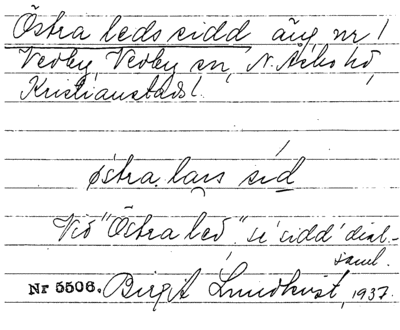 Östra leds sidd äng nr 1
Vedby, Vedby sn, N. Åsbo hd,
Kristianstads l.
östra. lass sid
Vid "Östra led". si' sidd' dial-
saml.
Nr 5506. Birgit Lundkvist, 1937.